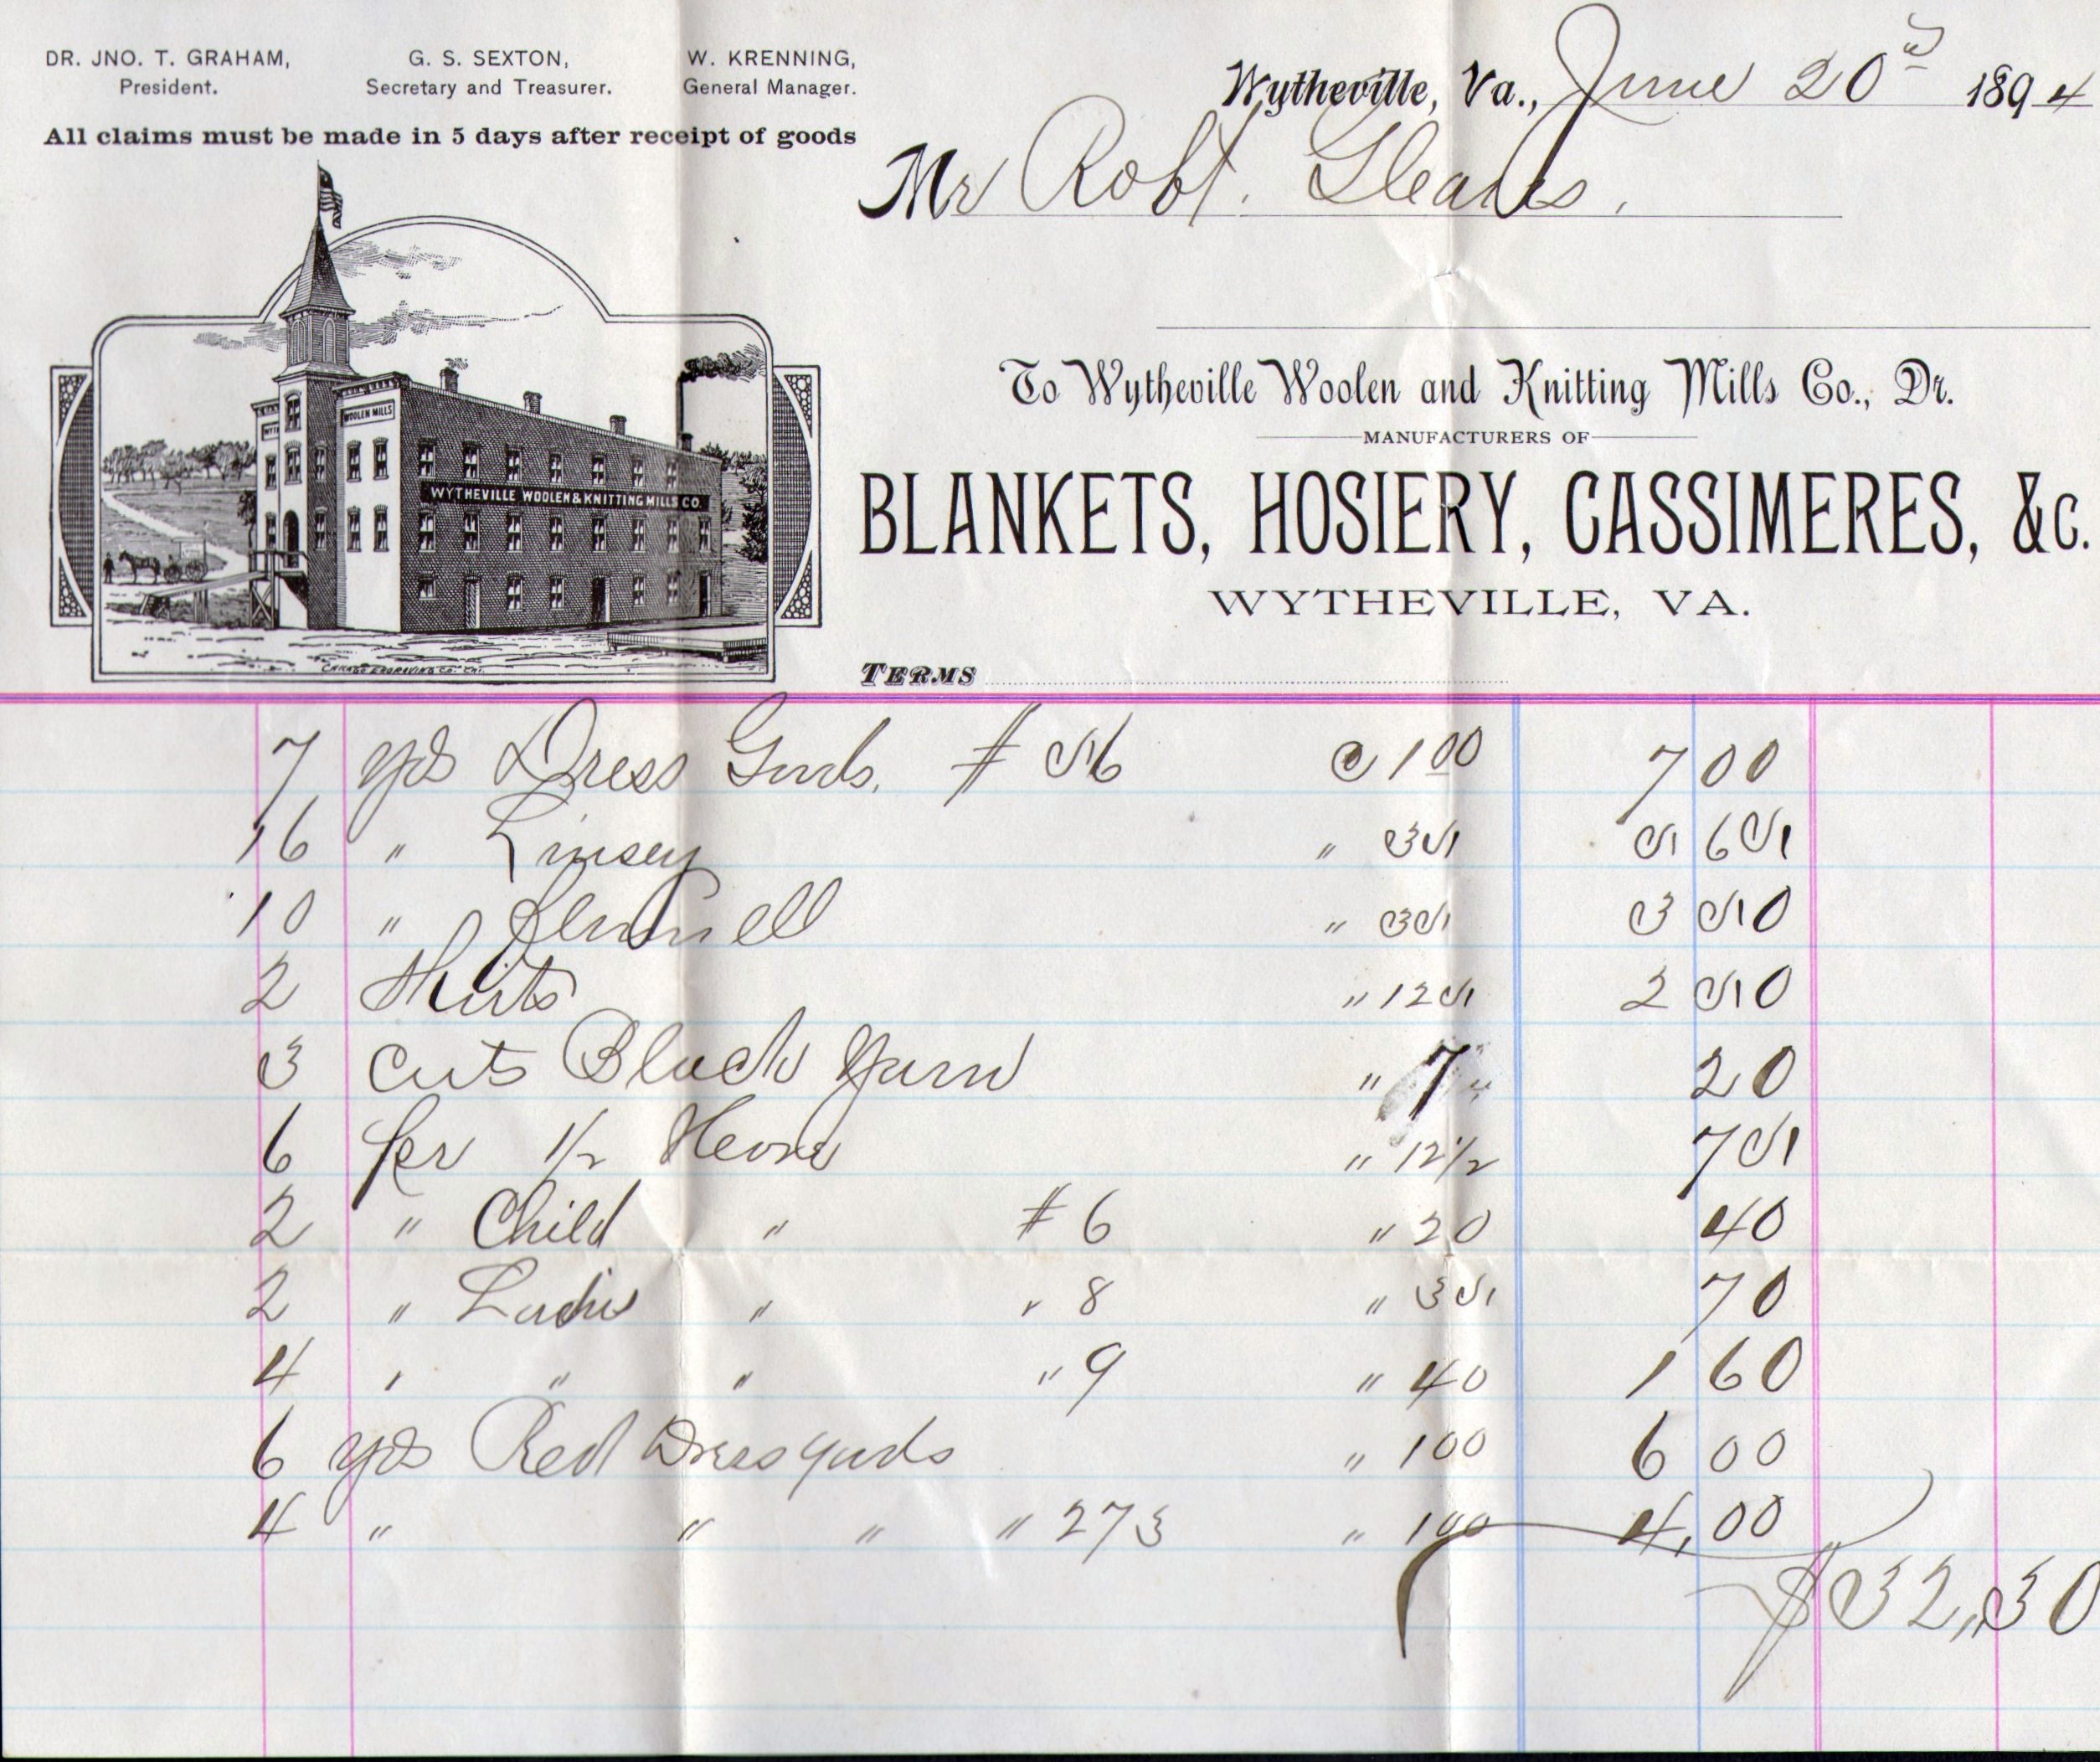 DR. JNO. T. GRAHAM, President.
G. S. SEXTON, Secretary and Treasurer.
W. KRENNING, General Manager.
All claims must be made in 5 days after receipt of goods
Wytheville, Va., June 20 1894
Mr Robt. Gleaves.
WOOLEN MILLS
WYTHEVILLE WOOLEN & KNITTING MILLS CO.
CHICAGO ENGRAVING CO. CHI.
To Wytheville Woolen and Knitting Mills Co., Dr.
MANUFACTURERS OF
BLANKETS, HOSIERY, CASSIMERES, &c.
WYTHEVILLE, VA.
TERMS
7 yds Dress Goods, # 56 @ 1 00 7 00
16 " Linsey " 35 5 65
10 " " 35 3 50
2 " 125 2 50
3 Cuts Black Yarn " 7 20
6 pr 1/2 " 12 1/2 75
2 " Child " # 6 " 20 40
2 " Ladies " " 8 " 35 70
4 " " " " 9 " 40 1 60
6 yds Red Dress goods " 100 6 00
4 " " " " 273 " 100 4,00
$32,30